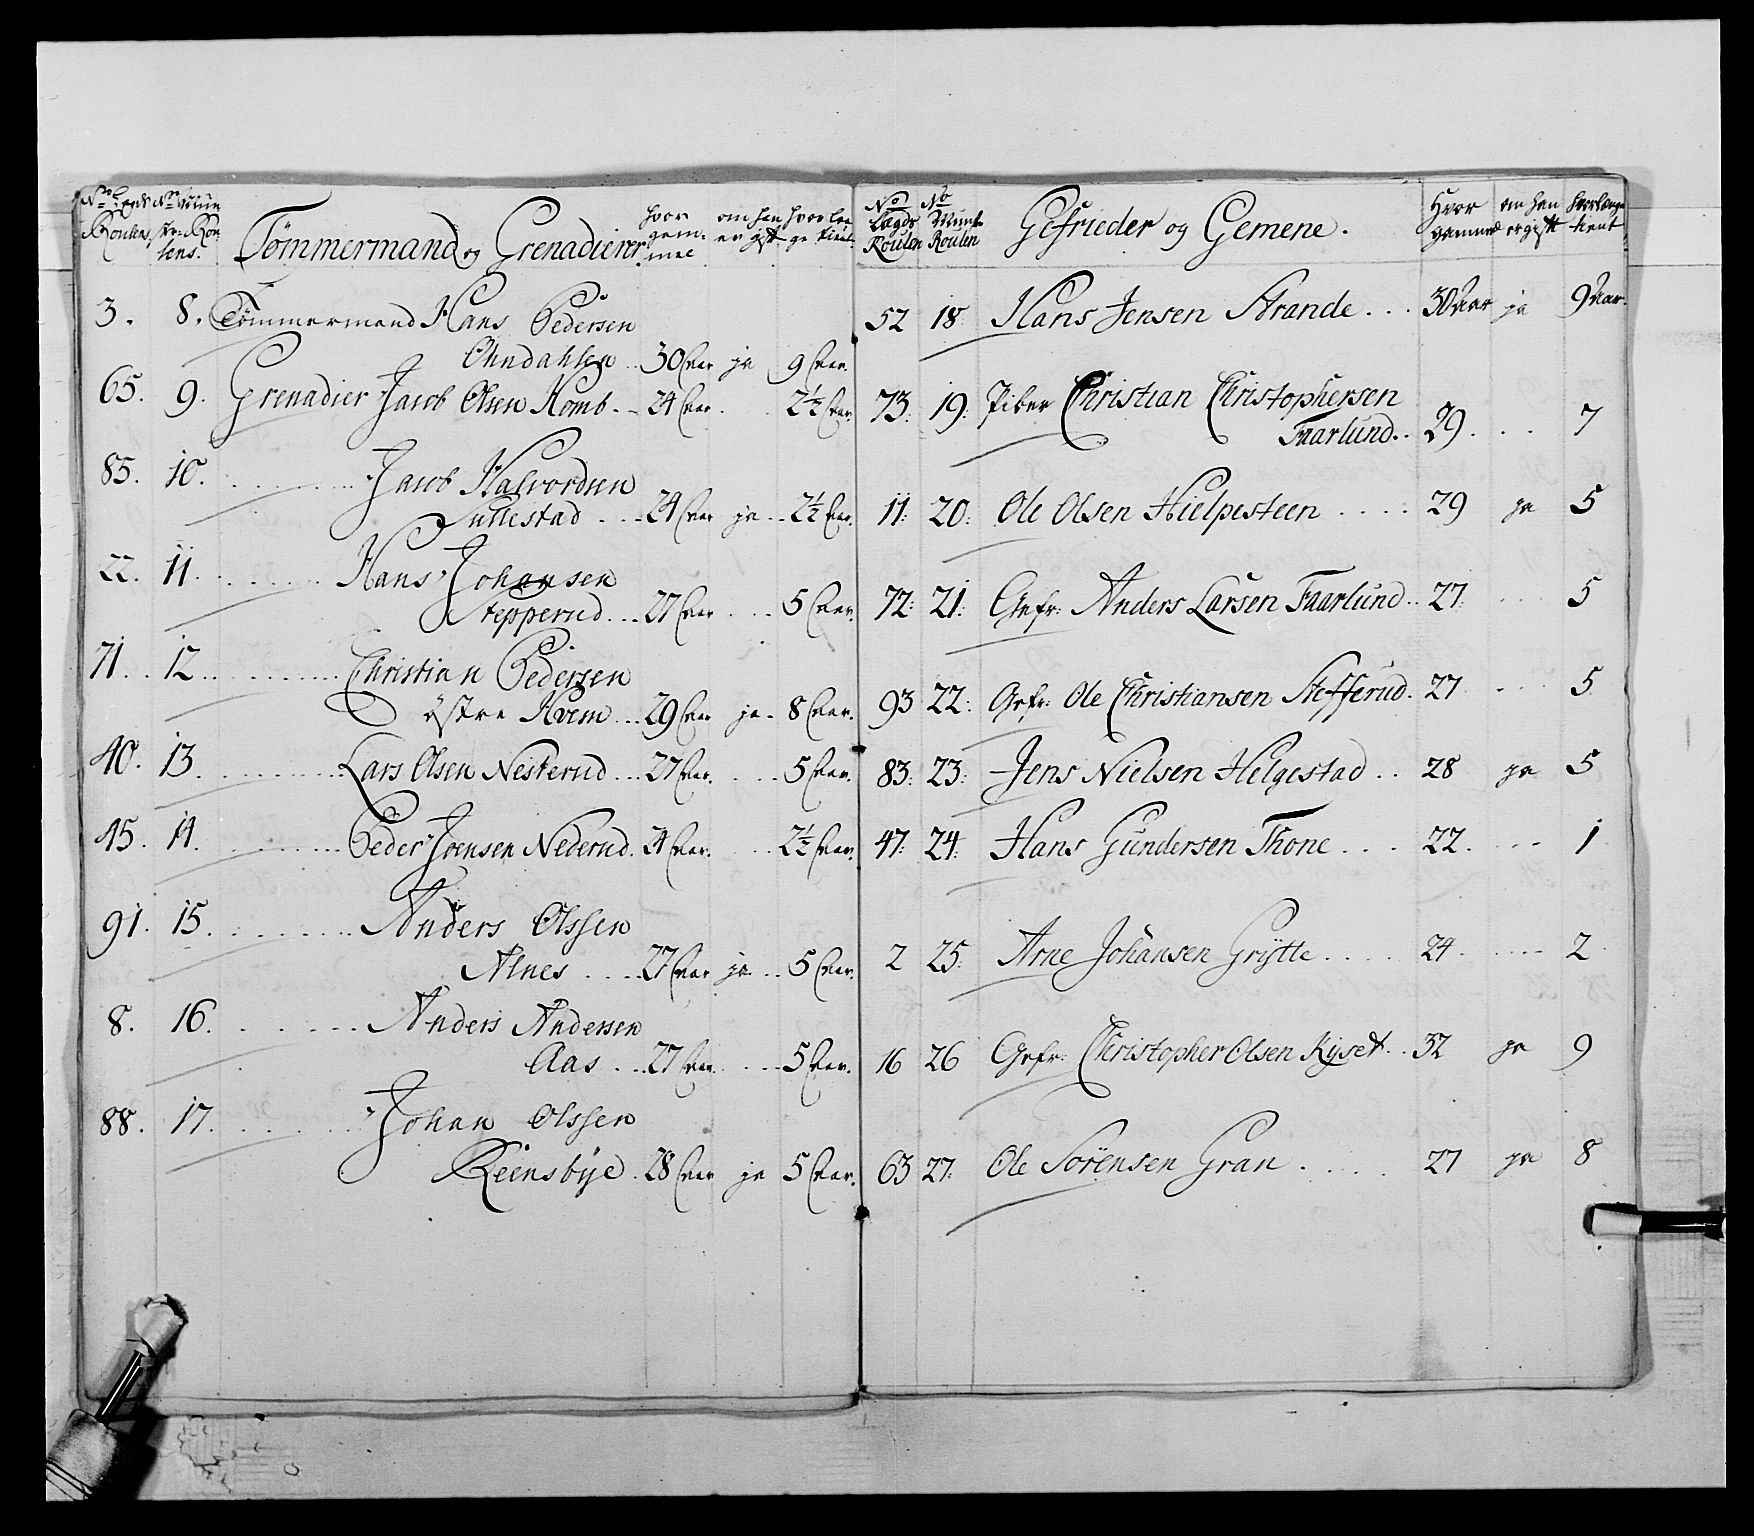 Tømmermand og Grenadierer
hvor gammel
om han er gift
hvor længe tient
3. 8. Tømmermand Hans Pedersen
Ohndahlen .. 30 Aar ja 9 Aar.
65. 9. Grenadier Jacob Olsen Komb. .. 24 Aar. .. 2½ Aar.
85. 10. ........ Jacob Halvordsen
Tullestad ... 24 Aar ja .. 2½ Aar.
22. 11. ........ Hans Johansen
Stepperud ... 27 Aar .... 5 Aar.
71. 12. ........ Christian Pedersen
østre Hvem ... 29 Aar ja. 8 Aar.
40. 13. ........ Lars Olsen Nesterud ... 27 Aar. .... 5 Aar.
45. 14. ........ Peder Joensen Nederud. 24 Aar. .... 2½ Aar.
91. 15. ........ Anders Olssen
Alnes .... 27 Aar ja .. 5 Aar.
8. 16. ...... Anders Andersen
Aas ... 27 Aar. .... 5 Aar.
88. 17. ...... Johan Olssen
Reensbye. 28 Aar ja 5 Aar.
No Lægds Roulen
No Munst. Roulen
Gefrieder og Gemene.
Hvor gammel
om han er gift
hvorlænge tient
52 18. Hans Jensen Strande ... 30 Aar ja 9 Aar.
73. 19. Piber Christian Christophersen
Faarlund.. 29. ... 7
11: 20: Ole Olsen Hielpesteen ..... 29 ja 5
72: 21: Gefr: Anders Larsen Faarlund .. 27: ... 5
93 22: Gefr: Ole Christiansen Stefferud. 27 ... 5
83: 23: Jens Nielsen Helgestad .. 28 ja 5
47: 24: Hans Gundersen Thone .... 22. .... 1
2 25: Arne Johansen Grytte ..... 24. .... 2
16 26 Gefr: Christopher Olsen Kyset .. 32 ja 9
63 27: Ole Sørensen Gran ..... 27 ja 8